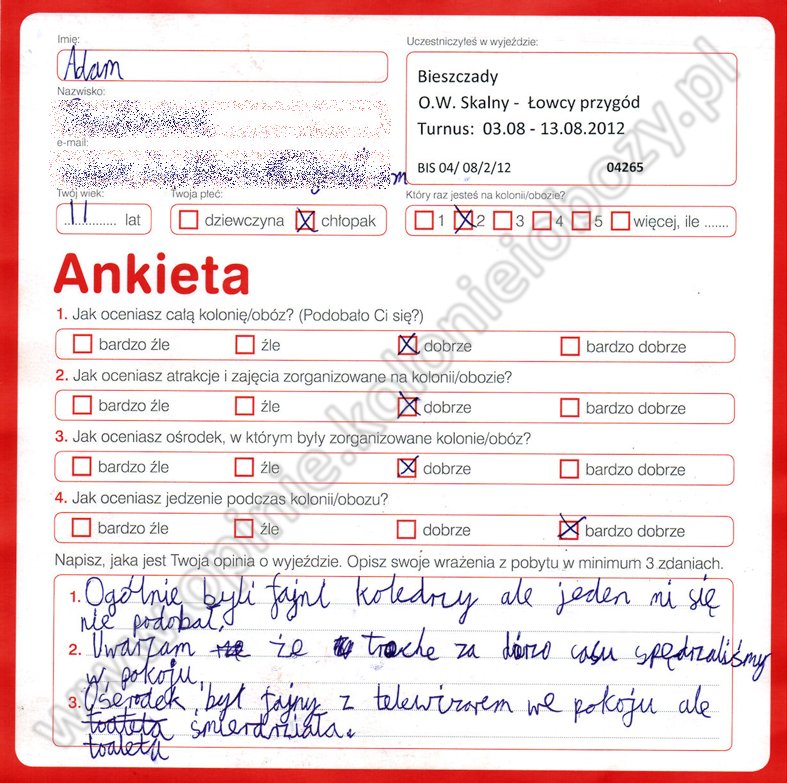 Imię:
Adam
Nazwisko:
e-mail:
m
Twój wiek:
11 lat
Twoja płeć:
dziewczyna chłopak
Uczestniczyłeś w wyjeździe:
Bieszczady
O.W. Skalny - Łowcy przygód
Turnus: 03.08 - 13.08.2012
BIS 04/ 08/2/12 04265
Który raz jesteś na kolonii/obozie?
1 2 3 4 5 więcej, ile .......
Ankieta
1. Jak oceniasz całą kolonię/obóz? (Podobało Ci się?)
bardzo źle źle dobrze bardzo dobrze
2. Jak oceniasz atrakcje i zajęcia zorganizowane na kolonii/obozie?
bardzo źle źle dobrze bardzo dobrze
3. Jak oceniasz ośrodek, w którym były zorganizowane kolonie/obóz?
bardzo źle źle dobrze bardzo dobrze
4. Jak oceniasz jedzenie podczas kolonii/obozu?
bardzo źle źle dobrze bardzo dobrze
Napisz, jaka jest Twoja opinia o wyjeździe. Opisz swoje wrażenia z pobytu w minimum 3 zdaniach.
1. Ogólnie byli fajni koledrzy ale jeden mi się
nie podobał.
2. Uwarzam że troche za dórzo casu spędrzaliśmy
w pokoju.
3. Ośerodek był fajny z telewizorem we pokoju ale
toaleta śmierdrziała.
toaleta
www.opinie.kolonieiobozy.pl